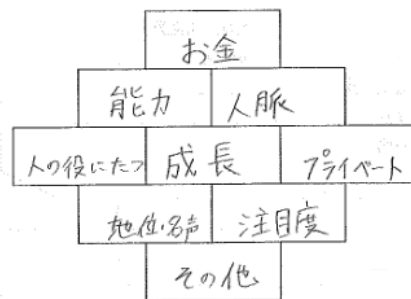 お金
能力 人脈
人の役にたつ 成長 プライベート
地位・名声 注目度
その他